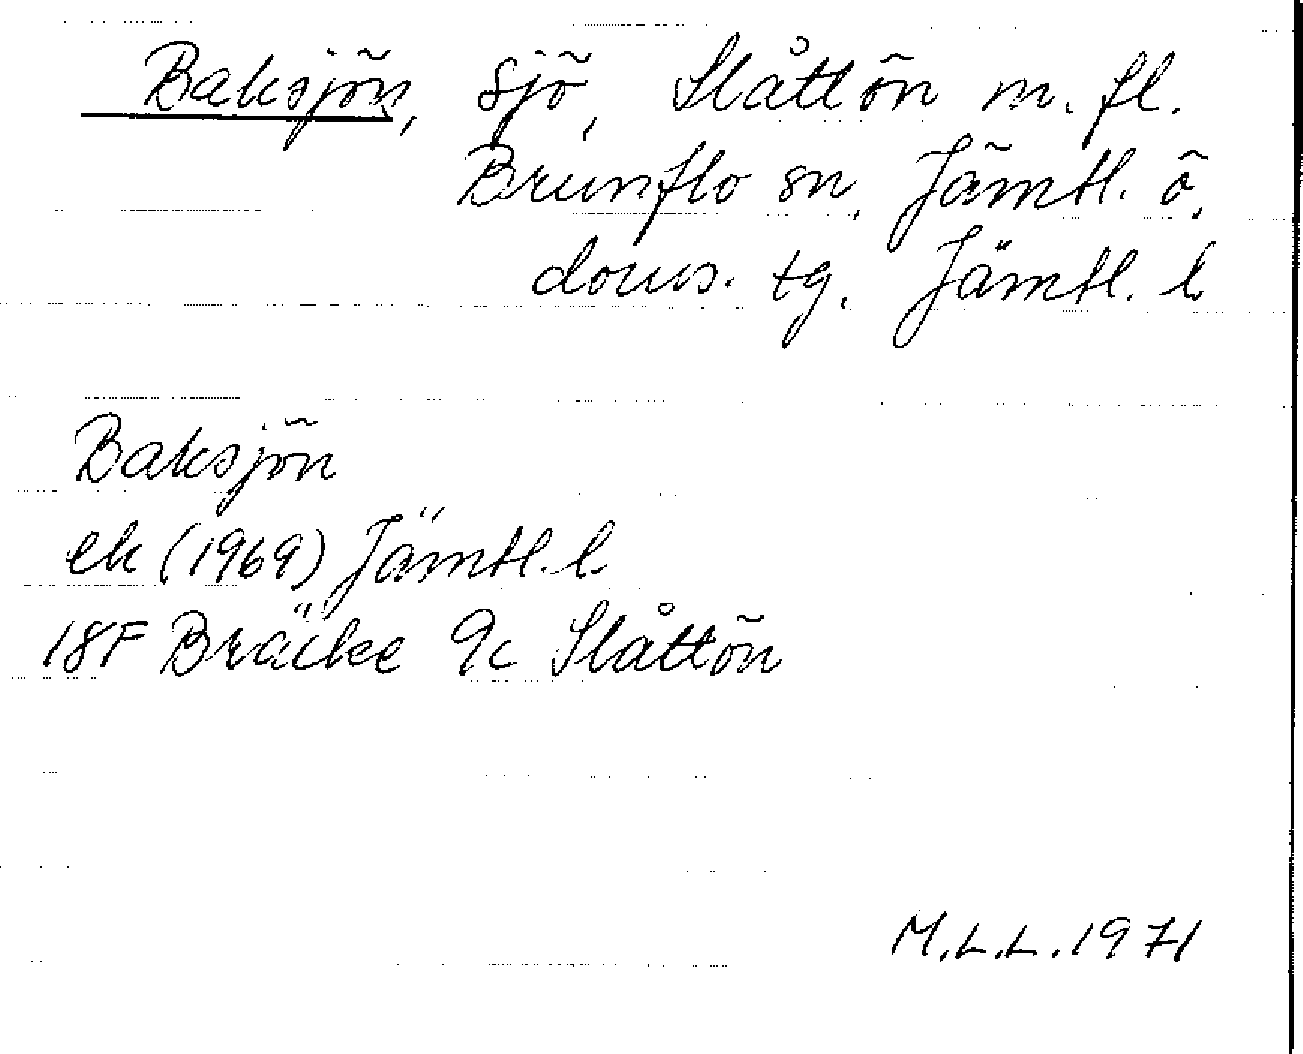 Baksjön, sjö, Slåttön m. fl.
Brunflo sn, Jämtl. ö.
doms. tg. Jämtl. l
Baksjön
ek (1969) Jämtl. l.
18F Bräcke 9c Slåttön
M.L.L. 1971